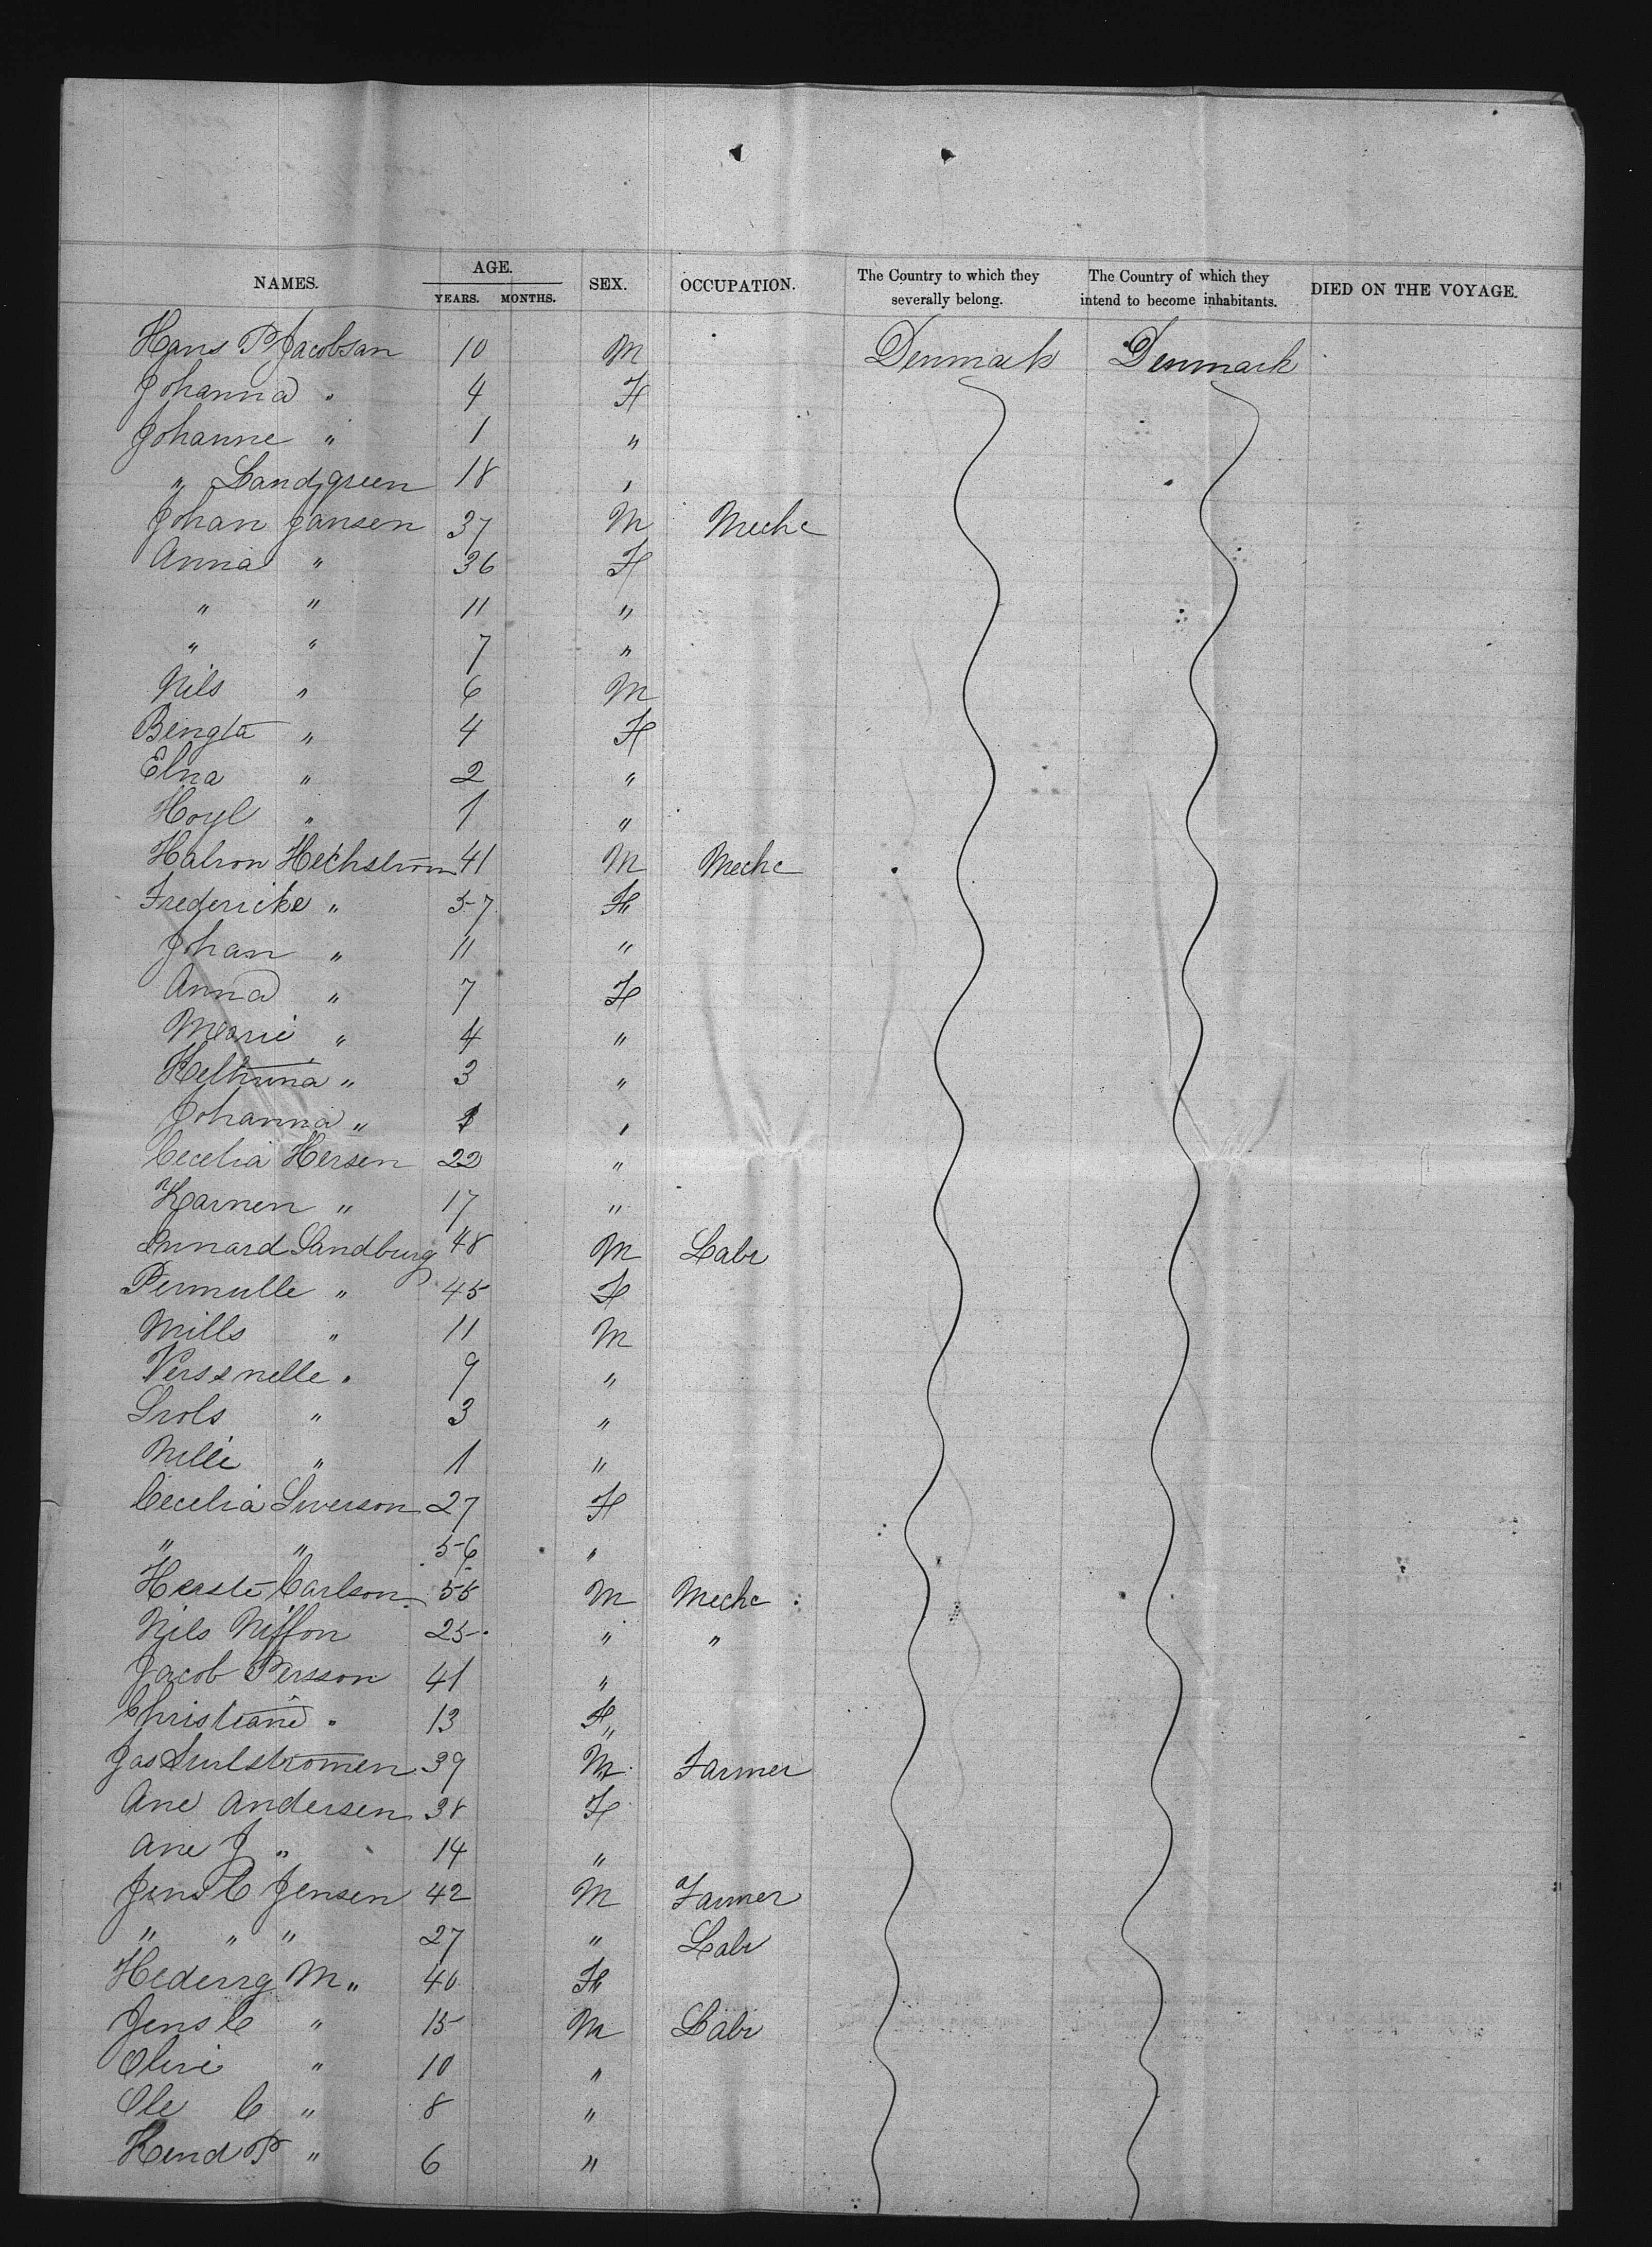 NAMES. AGE. YEARS. MONTHS. SEX. OCCUPATION. The Country to which they severally belong. The Country of which they intend to become inhabitants. DIED ON THE VOYAGE.
Hans P Jacobsan 10 M Denmark Denmark
Johanna " 4 F
Johanne " 1 "
" Landgreen 18 "
Johan Jansen 37 M Mechc
Anna " 36 F
" " 11 "
" " 7 "
Nils " 6 M
Bengta " 4 F
Elna " 2 "
Hoyl " 1 "
Halron Hechstrom 41 M Mechc
Fredericke " 37 F
Johan " 11 "
Anna " 7 F
Marie " 4 "
Helhmina " 3 "
Johanna " "
Cecelia Hersen 22 "
Karnen " 17 "
Lunard Sandburg 48 M Labr
Permulle " 45 F
Mills " 11 M
Verssnelle " 9 "
Lrols " 3 "
Nille " 1 "
Cecelia Swerson 27 F
" " 56 "
Herste Carlson 55 M Mechc
Nils Niffon 25 " "
Jacob Persson 41 "
Christiane " 13 F
Jas 39 M Farmer
Ane Andersen 38 F
Ane J " 14 "
Jens C Jensen 42 M Farmer
" " " 27 " Labr
Hedevig M " 40 F
Jens C " 15 M Labr
Olive " 10 "
Ole C " 8 "
Kend P " 6 "